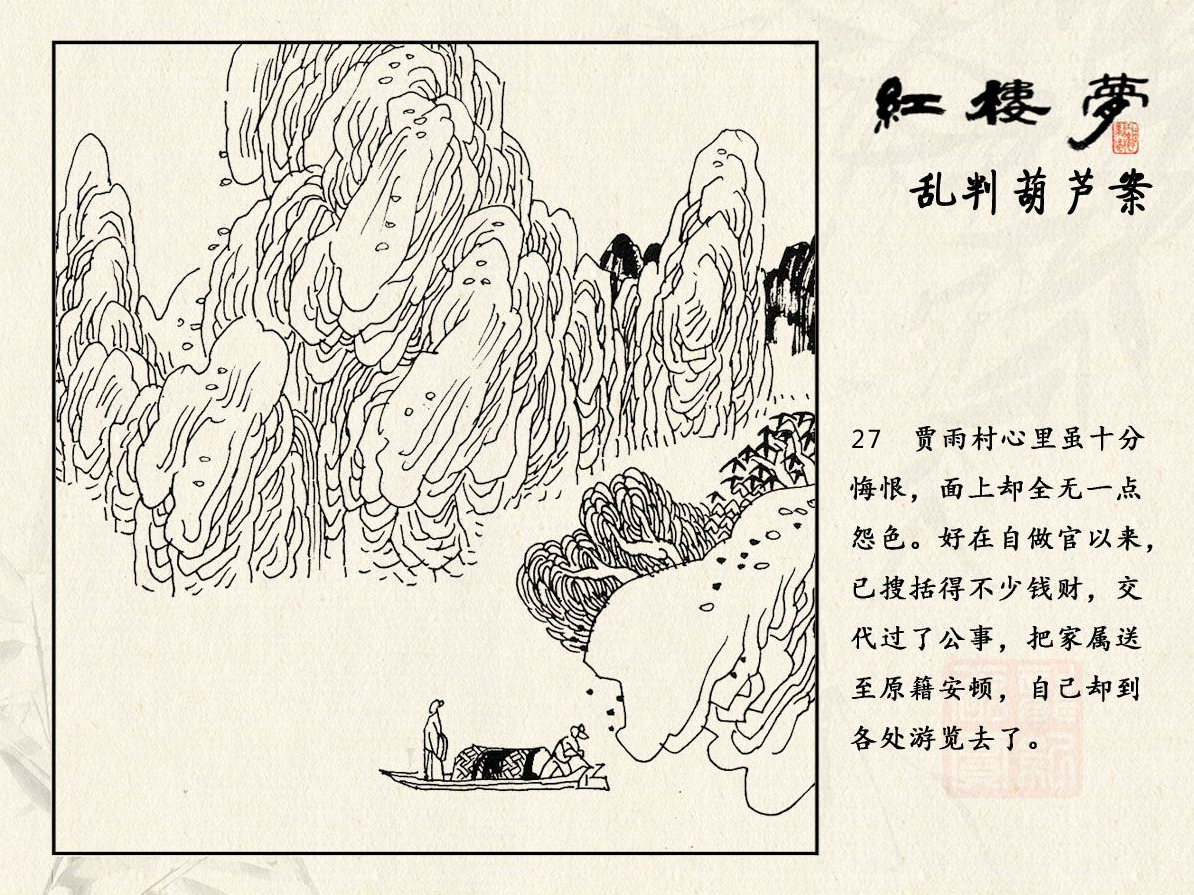 紅樓夢
乱判葫芦案
27 贾雨村心里虽十分
悔恨，面上却全无一点
怨色。好在自做官以来，
已搜括得不少钱财，交
代过了公事，把家属送
至原籍安顿，自己却到
各处游览去了。